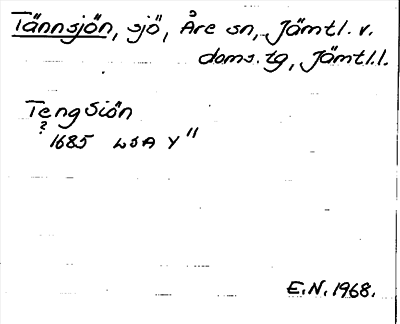 Tännsjön, sjö, Åre sn, Jämtl. v.
doms. tg, Jämtl.l.
Teng Siön
?
1685 LSA Y"
E.N. 1968.